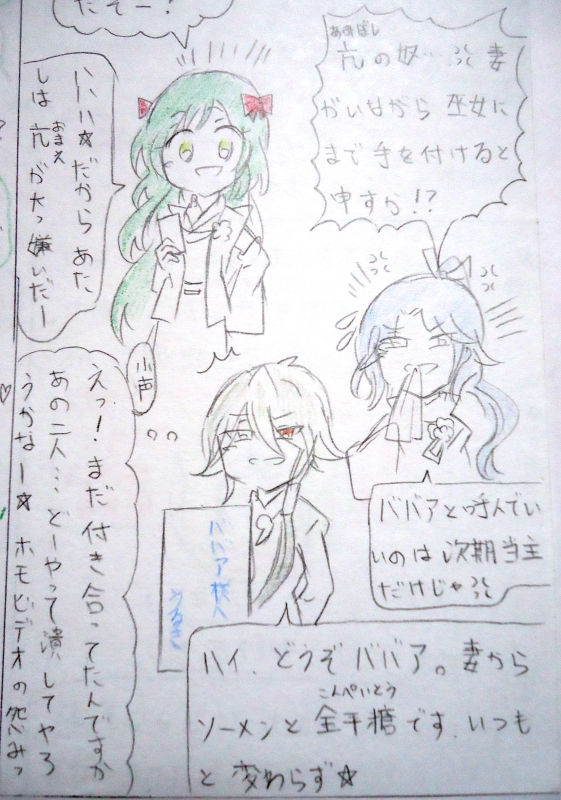 だぞー!
亢の奴…妻
あみぼし
がいながら巫女に
まで手を付けると
申すか!?
ババアと呼んでい
いのは次期当主
だけじゃ
ハハハ☆だからあた
しは亢が大っ嫌いだー
おまえ
小声
えっ!まだ付き合ってたんですか
あの二人…どーやって潰してやろ
うかなー☆ホモビデオの怨みっ
ババア様へ
うるき
ハイ、どうぞババア。妻から
ソーメンと金平糖です、いつも
こんぺいとう
と変わらず☆